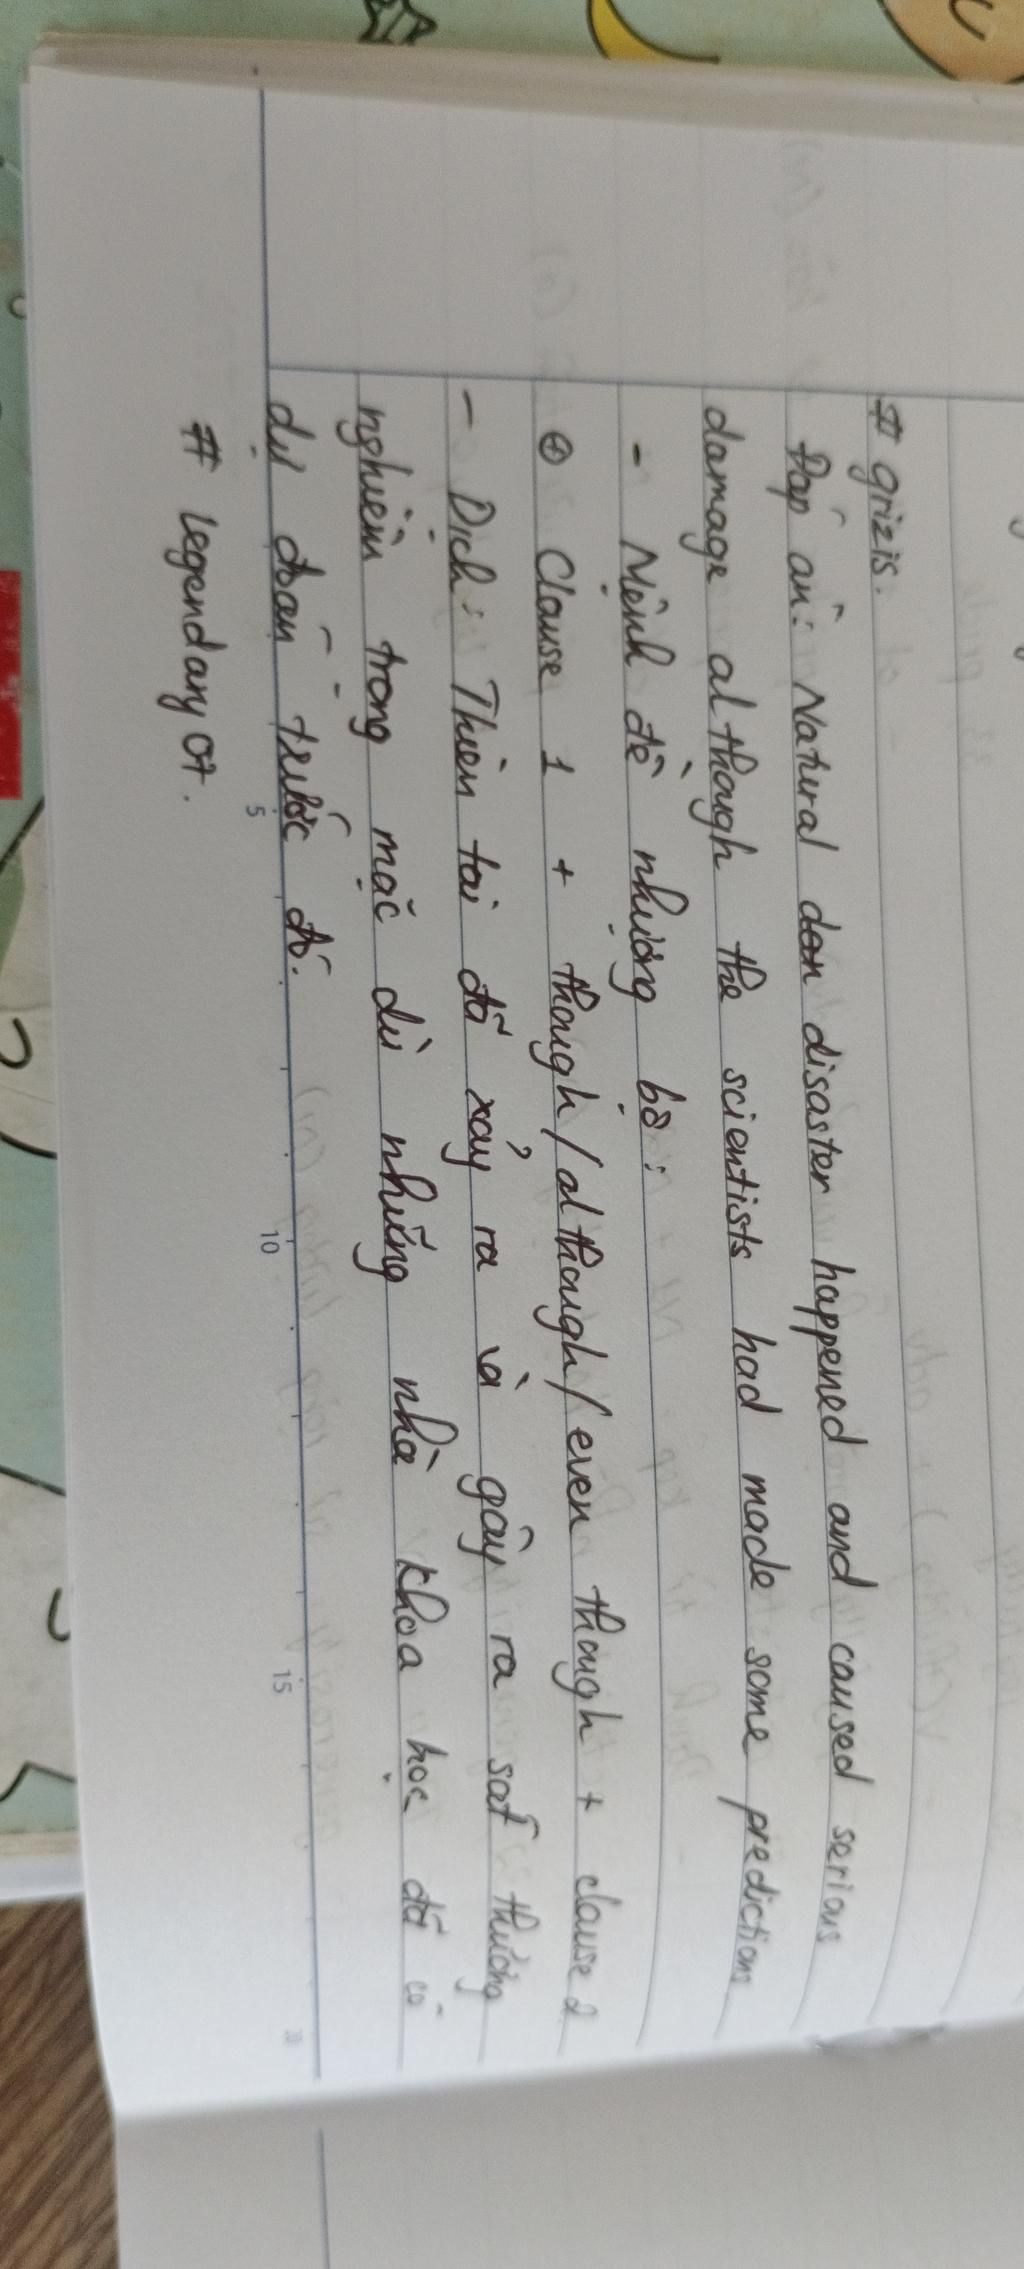 # grizis.
Đáp án: Natural don disaster happened and caused serious
damage although the scientists had made some predictions
- Mệnh đề nhượng bộ:
⊕ Clause 1 + though / although / even though + clause 2
- Dịch: Thiên tai đã xảy ra và gây ra sát thương
nghiêm trọng mặc dù những nhà khoa học đã có
dự đoán trước đó.
# legendary 07.
5 10 15 20